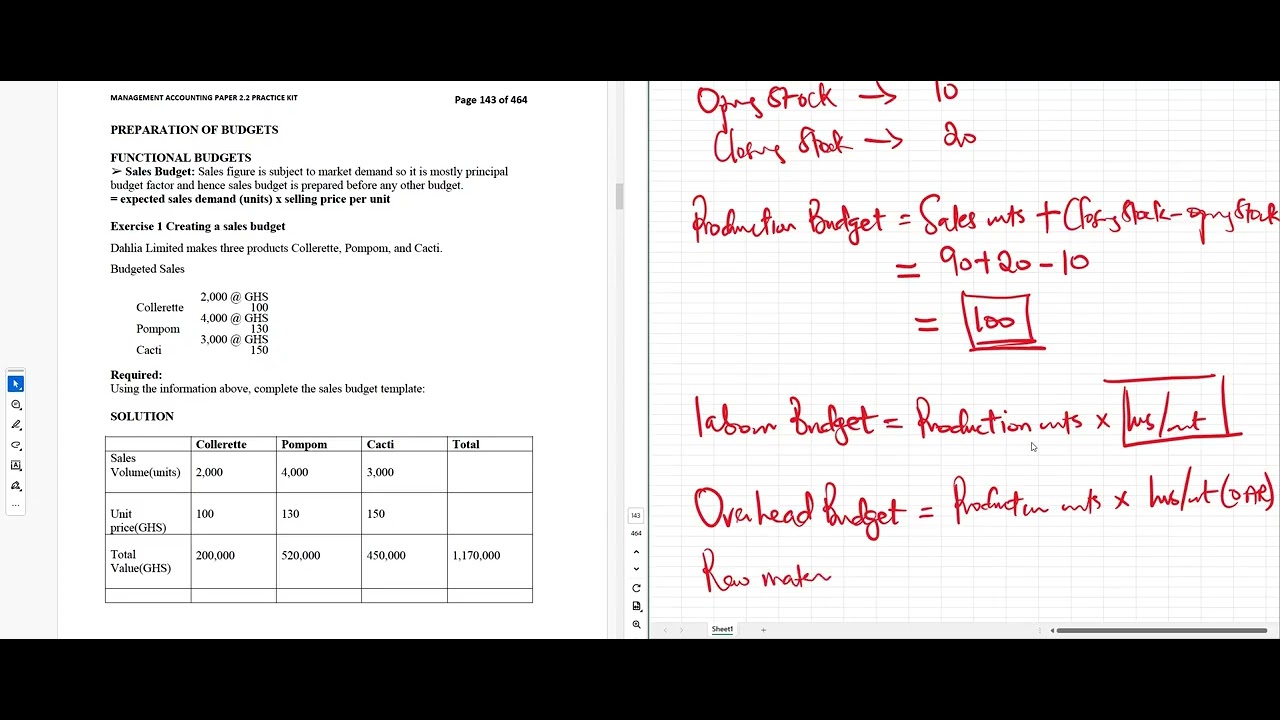 MANAGEMENT ACCOUNTING PAPER 2.2 PRACTICE KIT
Page 143 of 464
PREPARATION OF BUDGETS
FUNCTIONAL BUDGETS
➢ Sales Budget: Sales figure is subject to market demand so it is mostly principal
budget factor and hence sales budget is prepared before any other budget.
= expected sales demand (units) x selling price per unit
Exercise 1 Creating a sales budget
Dahlia Limited makes three products Collerette, Pompom, and Cacti.
Budgeted Sales
2,000 @ GHS
Collerette 100
4,000 @ GHS
Pompom 130
3,000 @ GHS
Cacti 150
Required:
Using the information above, complete the sales budget template:
SOLUTION
Collerette Pompom Cacti Total
Sales
Volume(units) 2,000 4,000 3,000
Unit
price(GHS) 100 130 150
Total
Value(GHS) 200,000 520,000 450,000 1,170,000
143
464
Opng Stock → 10
Closing Stock → 20
Production Budget = Sales units + Closing Stock - opng Stock
= 90+20-10
= 100
labour Budget = Production units × hrs/unt
Overhead Budget = Production units × hrs/unt (OAR)
Raw mater
Sheet1